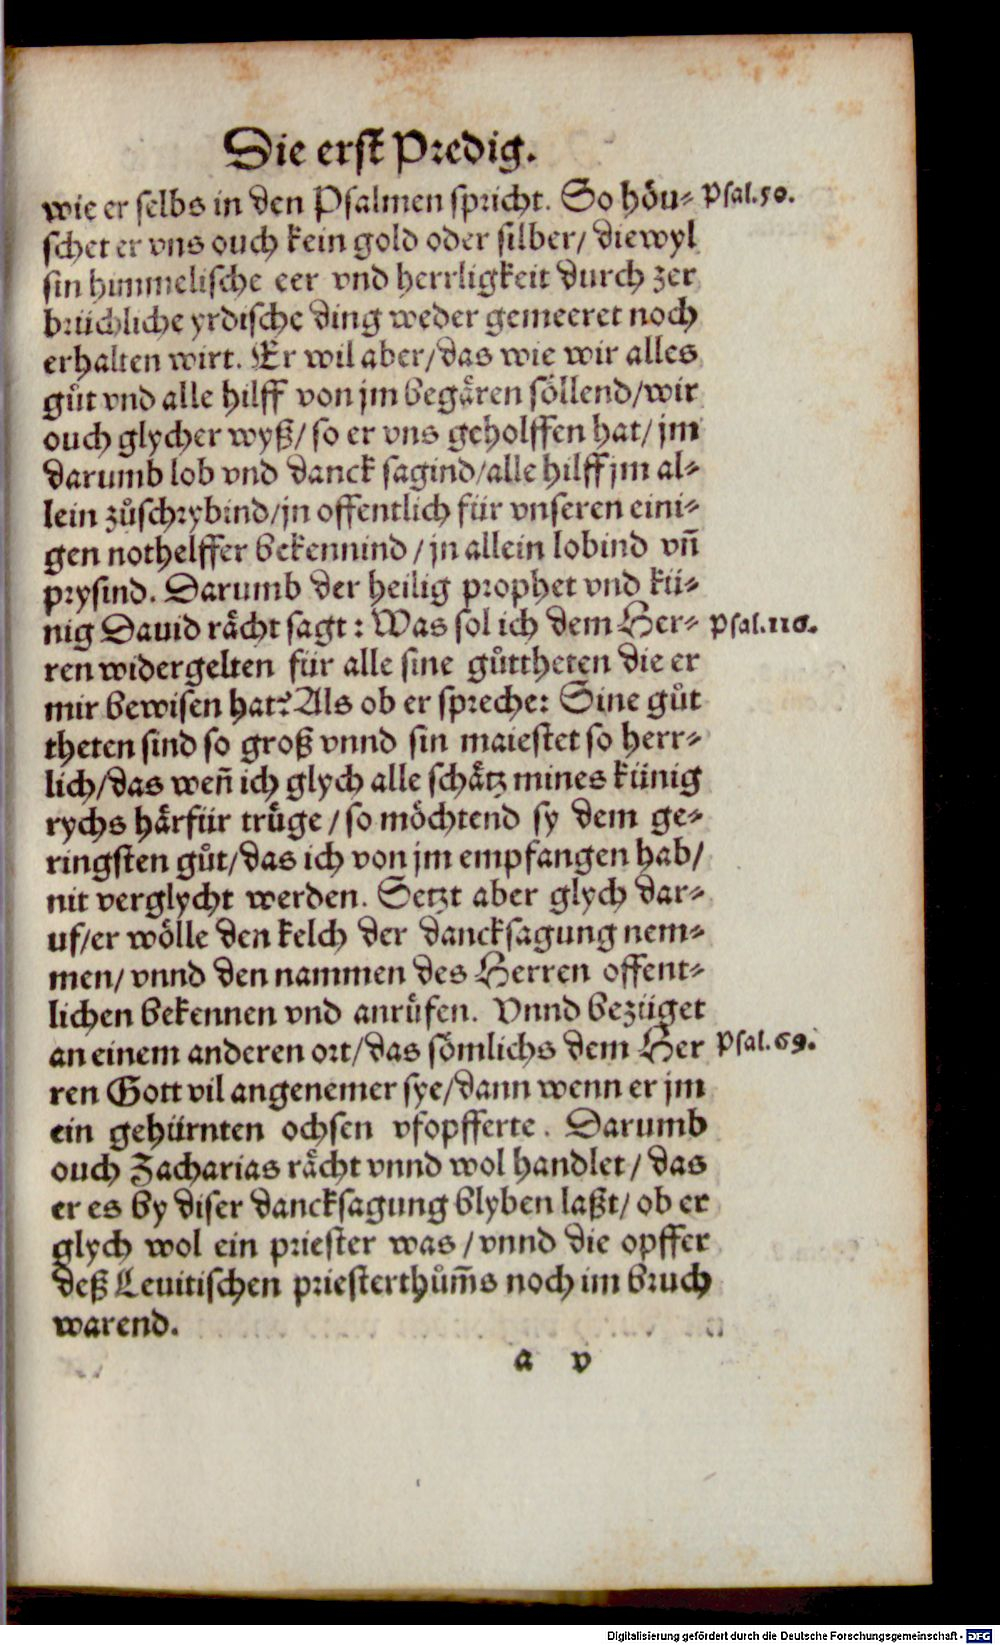 Die erst Predig.
wie er selbs in den Psalmen spricht. So höu⸗ Psal.50.
schet er vns ouch kein gold oder silber/ diewyl
sin himmelische eer vnd herrligkeit durch zer
brüchliche yrdische ding weder gemeeret noch
erhalten wirt. Er wil aber/das wie wir alles
gůt vnd alle hilff von jm begären söllend/wir
ouch glycher wyß/ so er vns geholffen hat/ jm
darumb lob vnd danck sagind/alle hilff jm al⸗
lein zůschrybind/jn offentlich für vnseren eini⸗
gen nothelffer bekennind / jn allein lobind vñ
prysind. Darumb der heilig prophet vnd kü⸗
nig Dauid rächt sagt: Was sol ich dem Her⸗ Psal.116.
ren widergelten für alle sine gůttheten die er
mir bewisen hat? Als ob er spreche: Sine gůt
theten sind so groß vnnd sin maiestet so herr⸗
lich/das weñ ich glych alle schätz mines künig
rychs härfür trüge / so möchtend sy dem ge⸗
ringsten gůt/das ich von jm empfangen hab/
nit verglycht werden. Setzt aber glych dar⸗
uf/er wölle den kelch der dancksagung nem⸗
men/ vnnd den nammen des Herren offent⸗
lichen bekennen vnd anrüfen. Vnnd bezüget
an einem anderen ort/das sömlichs dem Her Psal.69.
ren Gott vil angenemer sye/dann wenn er jm
ein gehürnten ochsen vfopfferte. Darumb
ouch Zacharias rächt vnnd wol handlet / das
er es by diser dancksagung blyben laßt/ ob er
glych wol ein priester was / vnnd die opffer
deß Leuitischen priesterthům̃s noch im bruch
warend.
a v
Digitalisierung gefördert durch die Deutsche Forschungsgemeinschaft - DFG